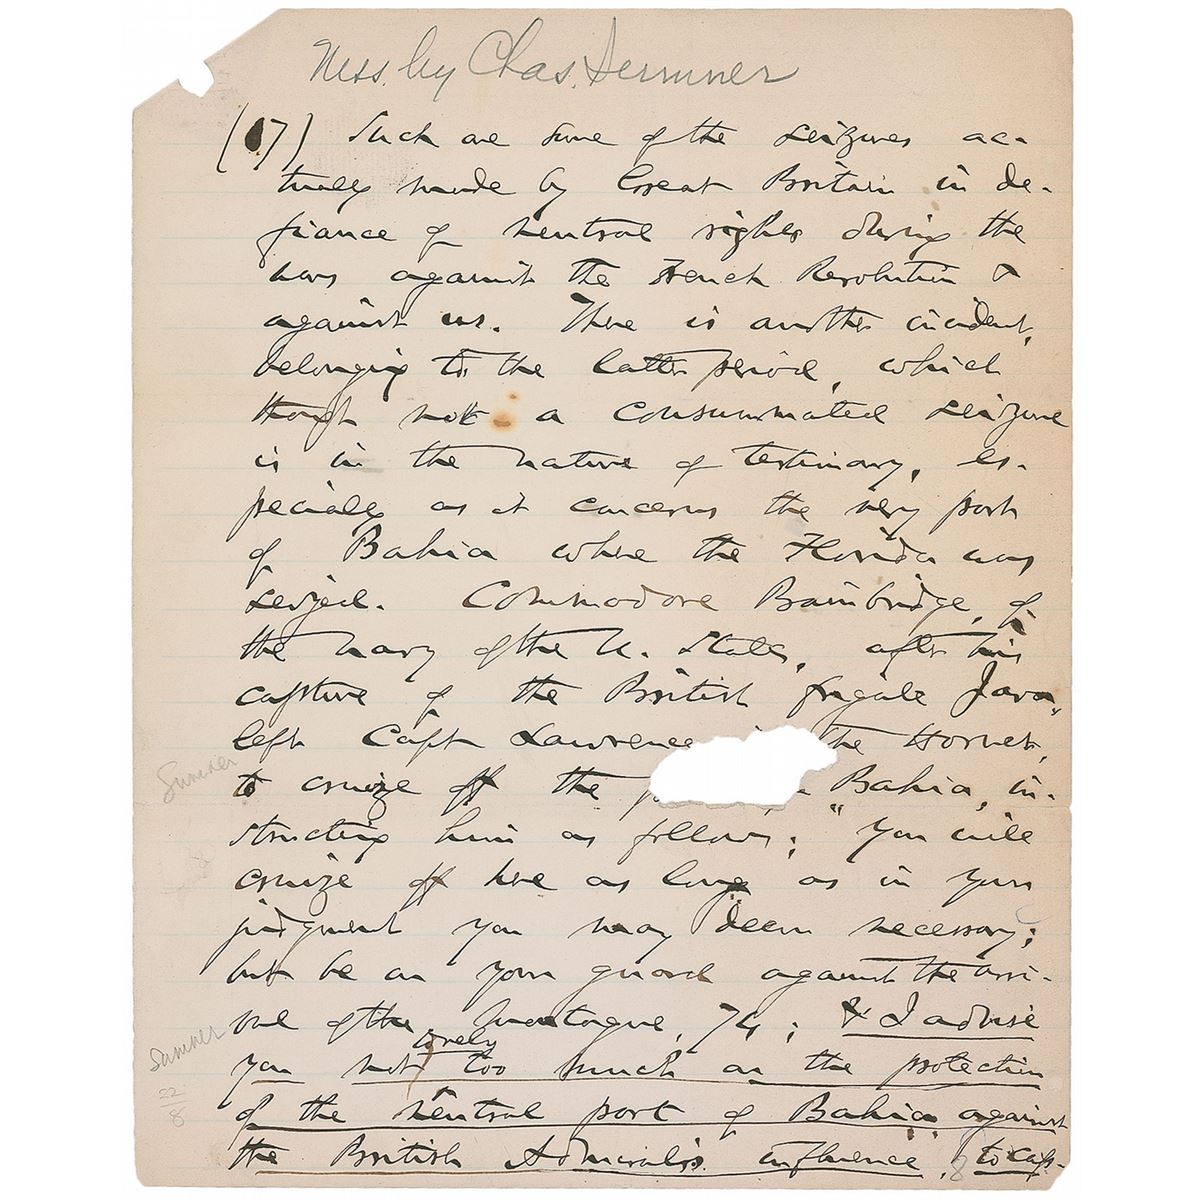 Mss. by Chas. Sumner
(17) Such are some of the seizures ac-
tually made by Great Britain in de-
fiance of neutral rights during the
wars against the French Revolution &
against us. There is another incident,
belonging to the latter period, which
though not a consummated seizure
is in the nature of testimony, es-
pecially as it concerns the very port
of Bahia where the Florida was
seized. Commodore Bainbridge, of
the navy of the U. States, after his
capture of the British frigate Java,
left Capt Lawrence the Hornet,
to cruize off the Bahia, in-
structing him as follows; "You will
cruize off here as long as in your
judgment you may deem necessary;
but be on your guard against the arri-
val of the Montague, 74; & I advise
you not rely too much on the protection
of the neutral port of Bahia against
the British Admiral's influence, to cap-
Sumner
Sumner
22
8